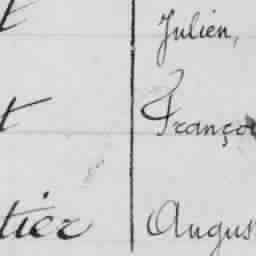 t Julien,
t Franço
tier Augus